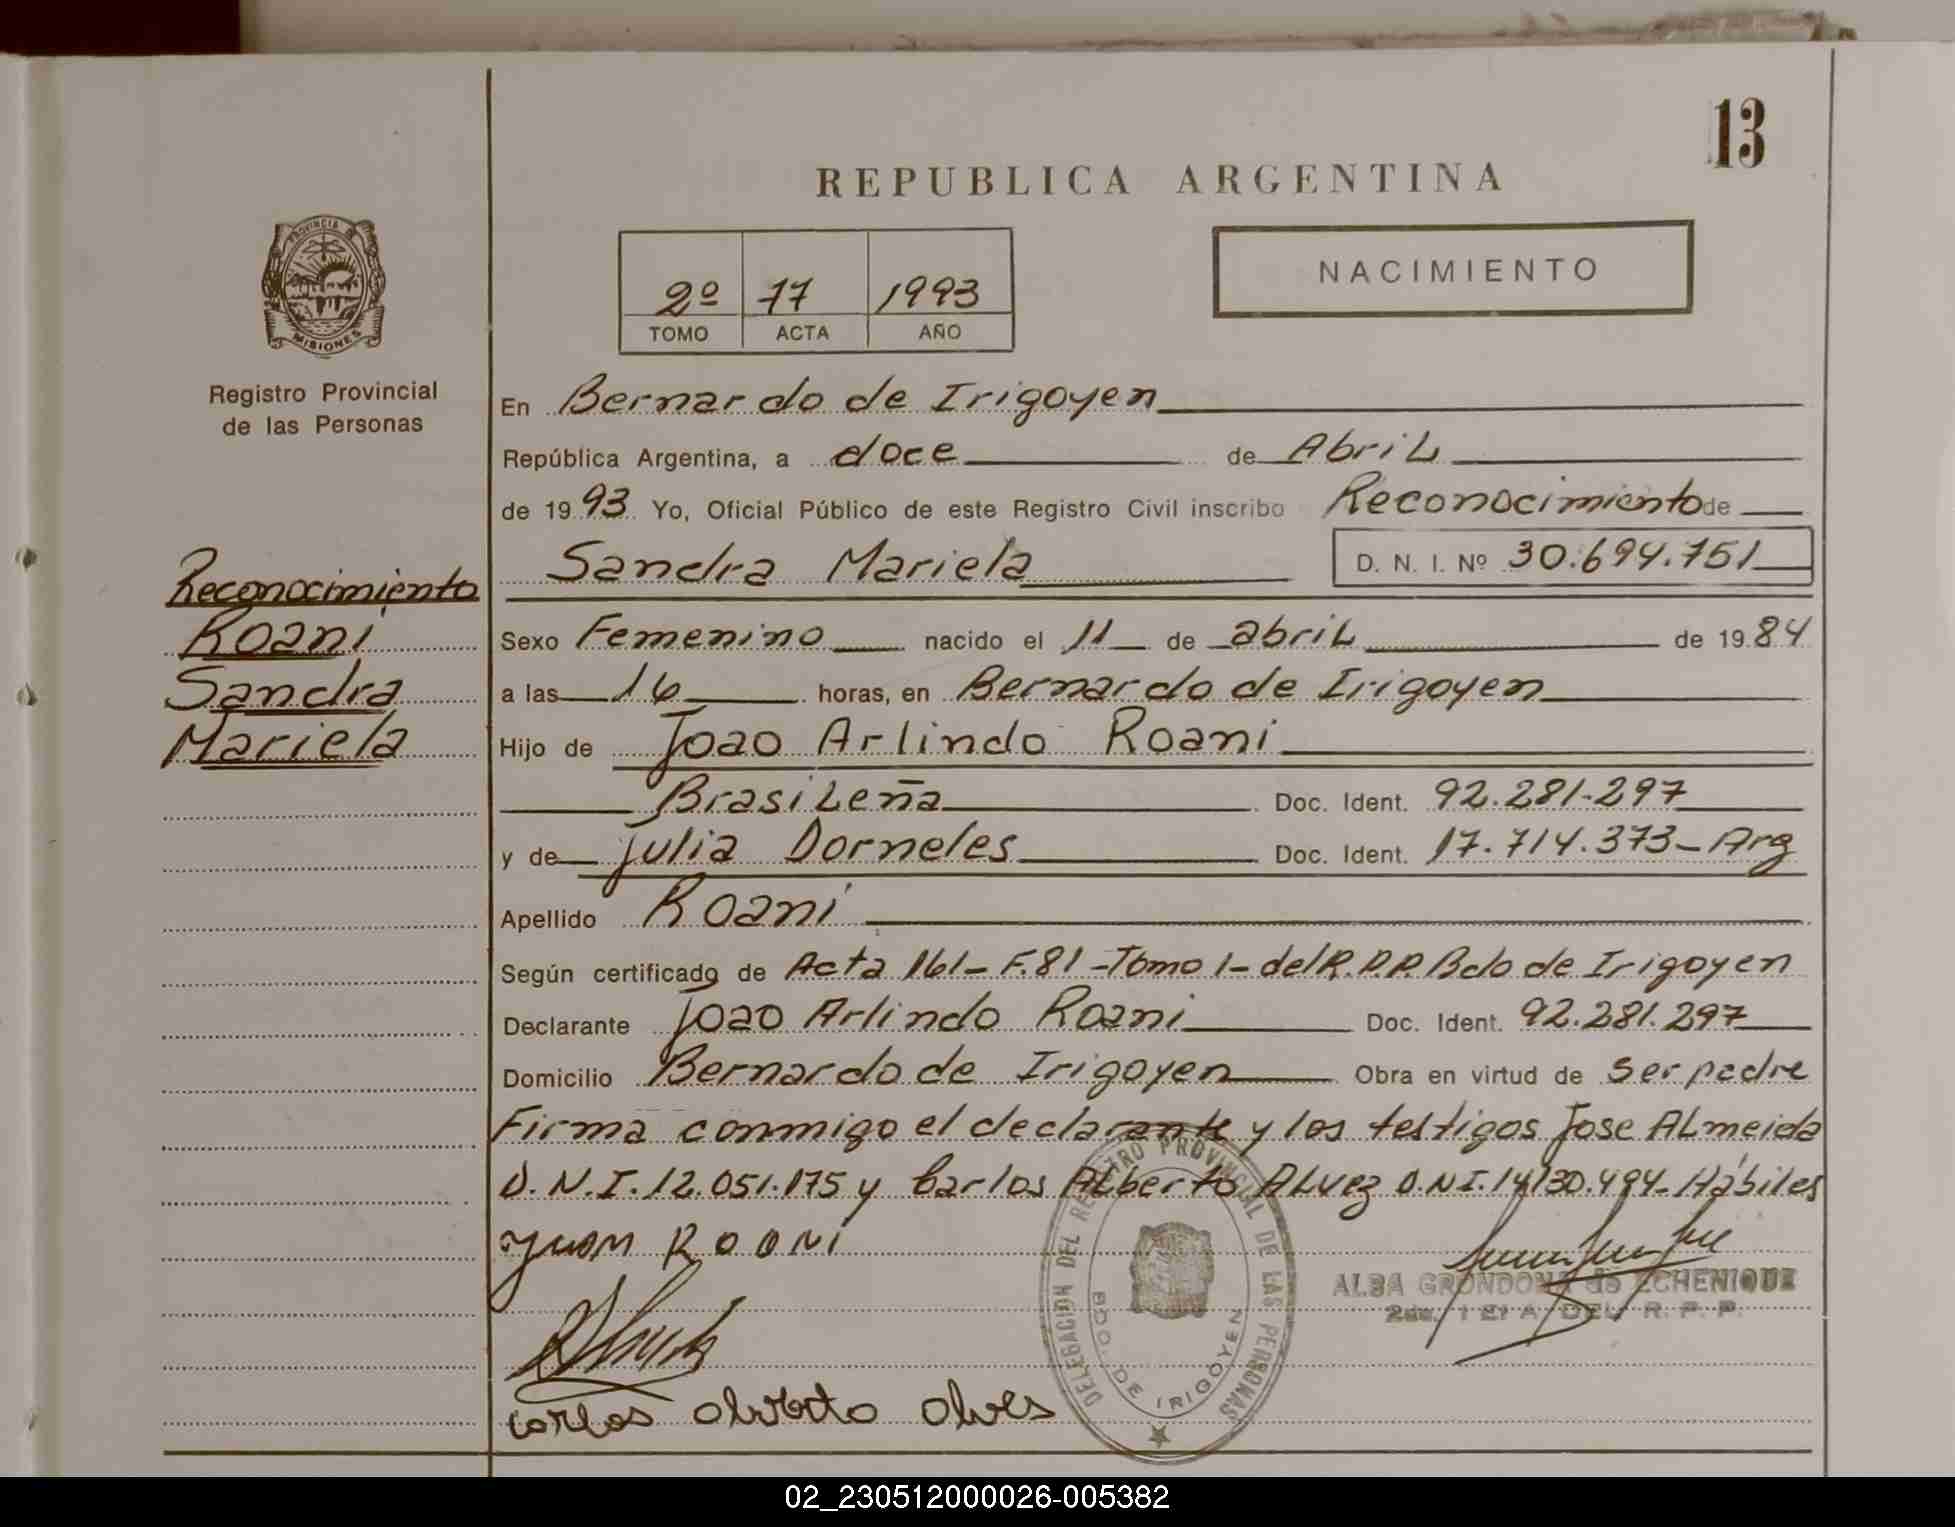 13
REPUBLICA ARGENTINA
PROVINCIA DE
MISIONES
2º 77 1993
TOMO ACTA AÑO
NACIMIENTO
Registro Provincial
de las Personas
En Bernardo de Irigoyen
República Argentina, a doce de Abril
de 1993 Yo, Oficial Público de este Registro Civil inscribo Reconocimiento de
Sandra Mariela D. N. I. Nº 30.694.751
Reconocimiento
Roani
Sandra
Mariela
Sexo Femenino nacido el 11 de abril de 1984
a las 16 horas, en Bernardo de Irigoyen
Hijo de Joao Arlindo Roani
Brasileña Doc. Ident. 92.281.297
y de Julia Dorneles Doc. Ident. 17.714.373-Arg
Apellido Roani
Según certificado de Acta 161-F.81-Tomo 1-del R.P.P. Bdo de Irigoyen
Declarante Joao Arlindo Roani Doc. Ident. 92.281.297
Domicilio Bernardo de Irigoyen Obra en virtud de ser padre
Firma conmigo el declarante y los testigos Jose Almeida
D.N.I.12.051.175 y Carlos Alberto Alvez D.N.I.14.130.494-Hábiles
Juan Roani
DELEGACION DEL REGISTRO PROVINCIAL DE LAS PERSONAS
BDO. DE IRIGOYEN
ALBA GRONDONA de ECHENIQUE
DEL R. P. P.
Carlos Alverto Alves
02_230512000026-005382